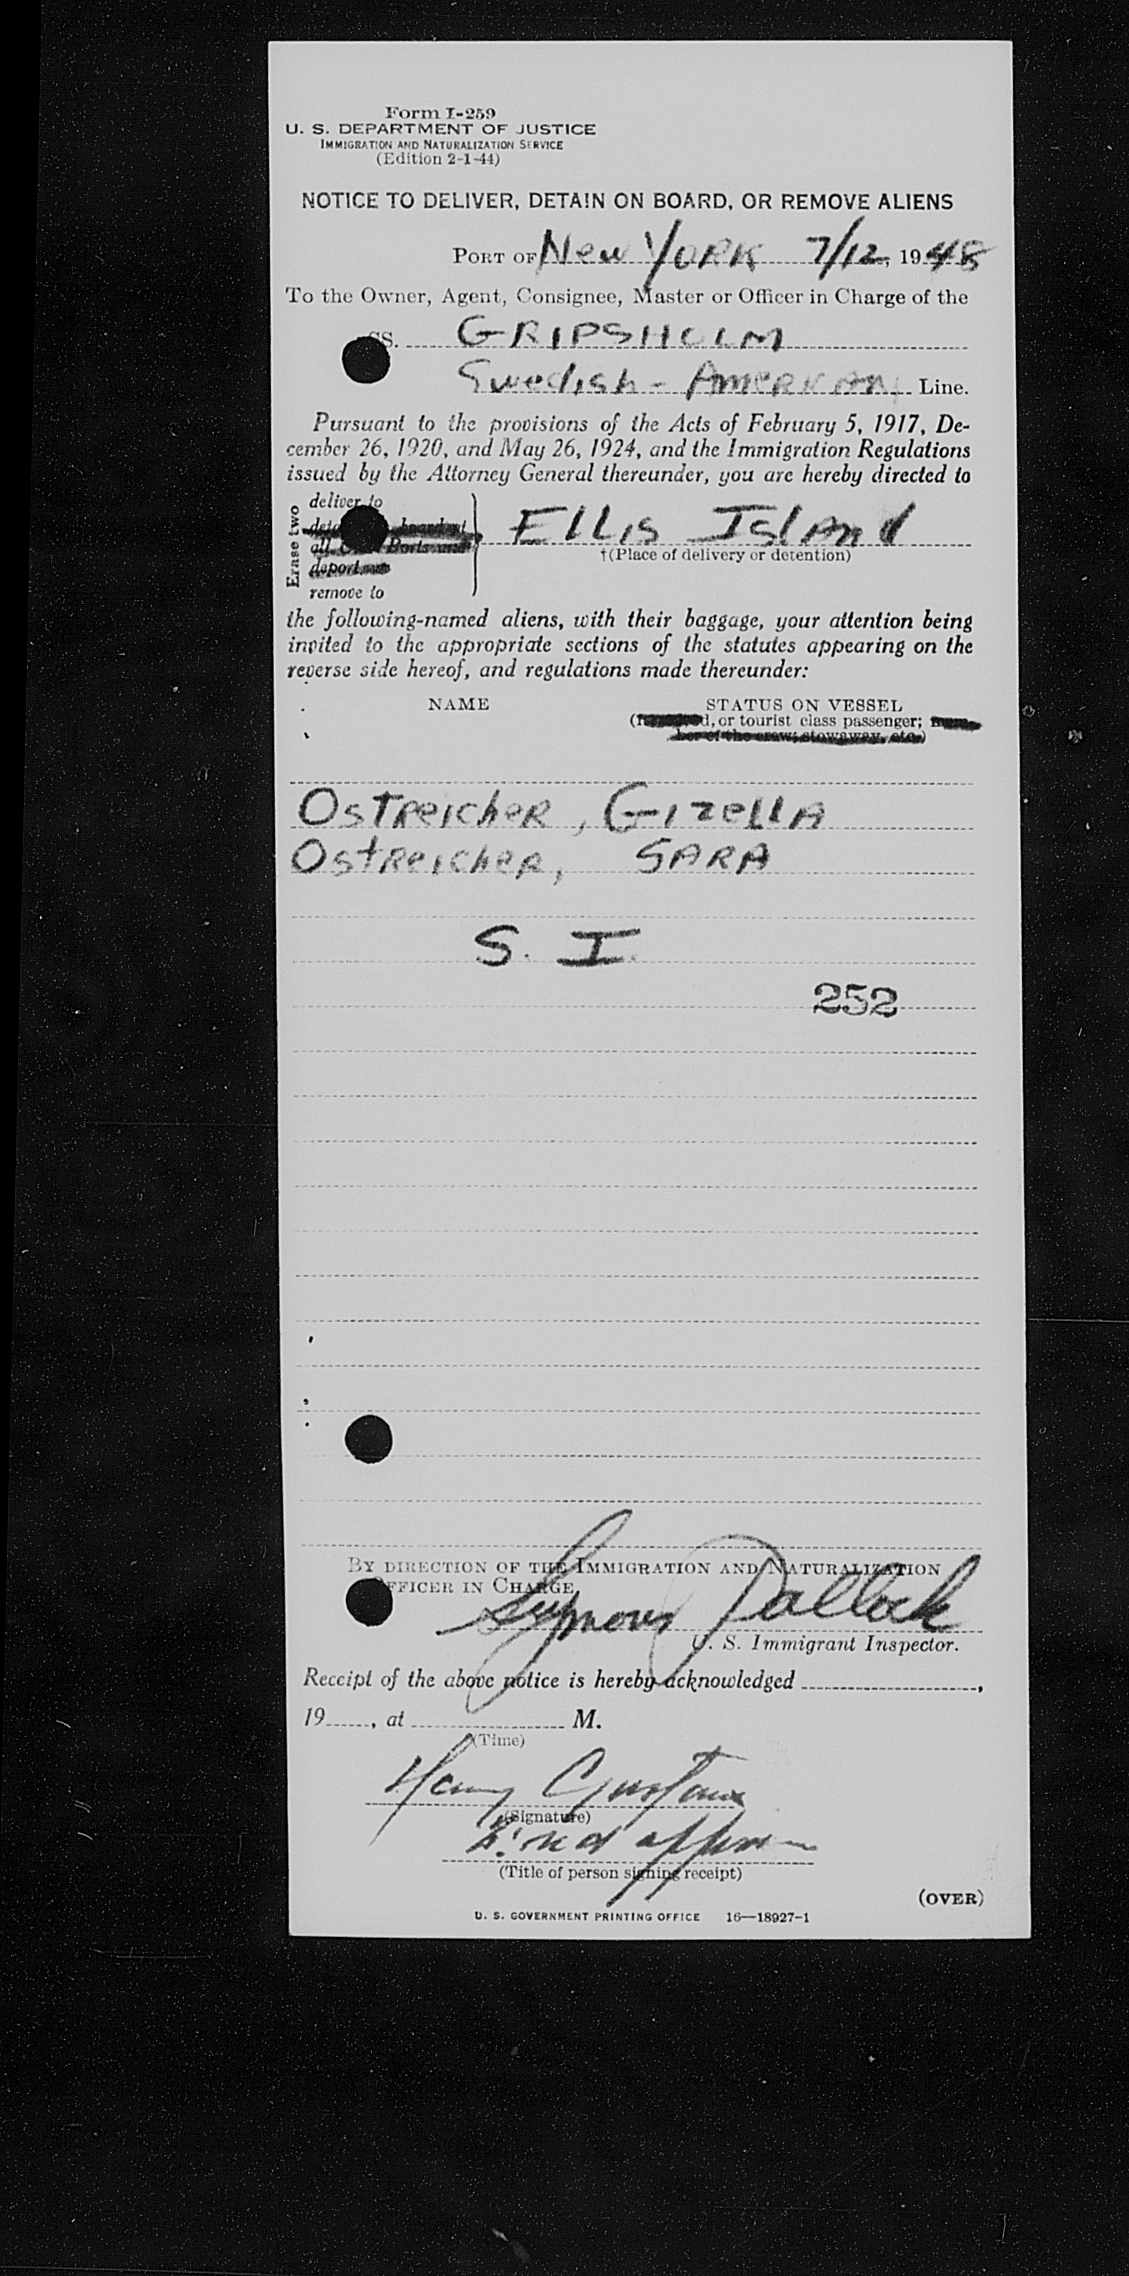 Form I-259
U. S. DEPARTMENT OF JUSTICE
IMMIGRATION AND NATURALIZATION SERVICE
(Edition 2-1-44)
NOTICE TO DELIVER, DETAIN ON BOARD, OR REMOVE ALIENS
PORT OF New YORK 7/12, 1948
To the Owner, Agent, Consignee, Master or Officer in Charge of the
SS. GRIPSHOLM
Swedish - AMERICAN Line.
Pursuant to the provisions of the Acts of February 5, 1917, De-
cember 26, 1920, and May 26, 1924, and the Immigration Regulations
issued by the Attorney General thereunder, you are hereby directed to
Erase two
deliver to
all Ports and
deport
remove to
Ellis Island
†(Place of delivery or detention)
the following-named aliens, with their baggage, your attention being
invited to the appropriate sections of the statutes appearing on the
reverse side hereof, and regulations made thereunder:
NAME STATUS ON VESSEL
or tourist class passenger;
ber of the crew; stowaway, etc.)
OSTReicheR, GizellA
OstReicheR, SARA
S. I.
252
BY DIRECTION OF THE IMMIGRATION AND NATURALIZATION
OFFICER IN CHARGE
Seymour Pollock
U. S. Immigrant Inspector.
Receipt of the above notice is hereby acknowledged ,
19 , at M.
(Time)
(Signature)
(Title of person signing receipt)
(OVER)
U. S. GOVERNMENT PRINTING OFFICE 16—18927-1